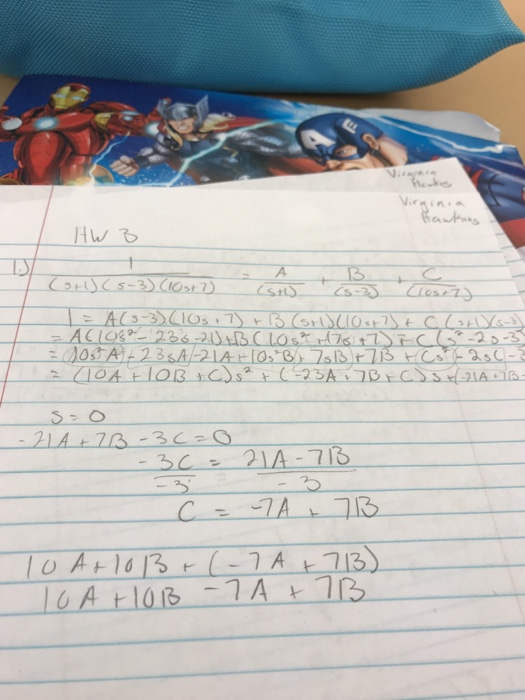 Virginia
Hawkins
Virginia
Hawkins
HW 3
1.) 1/((s+1)(s-3)(10s+7)) = A/(s+1) + B/(s-3) + C/(10s+7)
1 = A(s-3)(10s+7) + B(s+1)(10s+7) + C(s+1)(s-3)
= A(10s²-23s-21)+B(10s²+17s+7)+C(s²-2s-3)
= 10s²A-23sA-21A+10s²B+7sB+7B+Cs²-2sC-3
= (10A+10B+C)s²+(-23A+7B+C)s+(-21A+7B-
s=0
-21A+7B-3C=0
-3C/-3 = 21A-7B/-3
C = -7A + 7B
10A+10B+(-7A+7B)
10A+10B-7A+7B